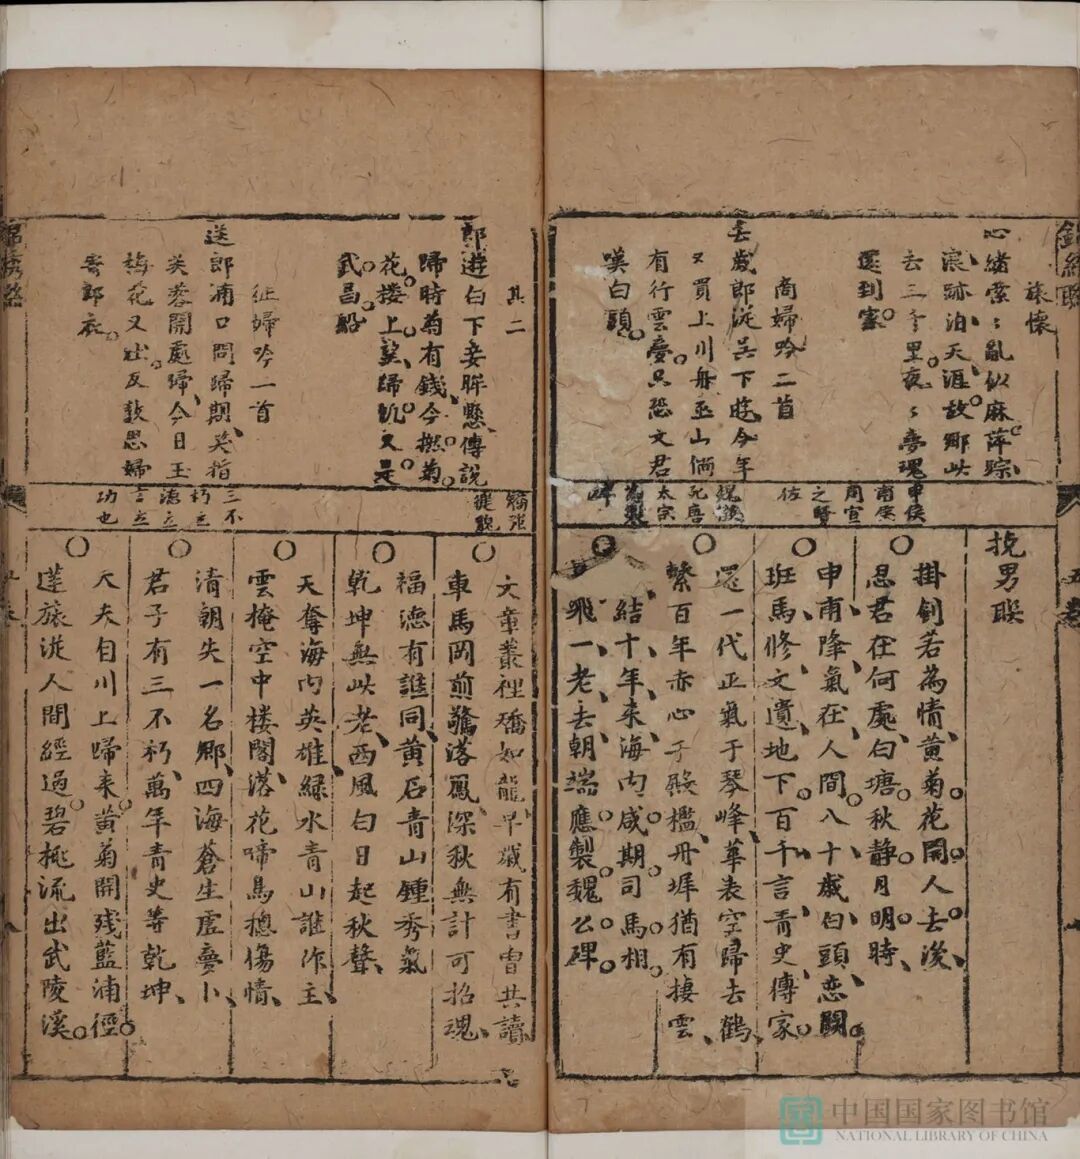 旅懷
心緒縈〻亂似麻萍踪
浪跡泊天涯故鄉此
去三千里夜〻夢魂
還到家
商婦吟二首
去歲郎從吳下遊今年
又買上川舟巫山倘
有行雲夢只恐文君
嘆白頭
申侯
南侯
周宣
之賢
佐
魏徵
死唐
太宗
為製
碑
挽男联
掛劍若為情黄菊花開人去後
思君在何處白塘秋静月明時
申甫降氣在人間八十歲白頭恋闕
班馬修文遺地下百千言青史傳家
還一代正氣于琴峰華表空歸去鶴
繫百年赤心于殿檻丹墀猶有棲雲
結十年来海内咸期司馬相
飛一老去朝端應製魏公碑
其二
郎遊白下妾眸懸傳說
歸時苟有錢今撚菊
花樓上望歸帆又是
武昌船
征婦吟一首
送郎浦口問歸期笑指
芙蓉開處歸今日玉
梅花又出反教思婦
寄郎衣
三不
朽立
德立
言立
功也
文章叢裡矯如龍早歲有書曾共讀
車馬岡前驚落鳳深秋無計可招魂
福德有誰同黄石青山鍾秀氣
乾坤無此老西風白日起秋聲
天奪海内英雄緑水青山誰作主
雲掩空中楼閣落花啼鳥總傷情
清朝失一名鄉四海蒼生虛夢卜
君子有三不朽萬年青史等乾坤
大夫自川上歸来黄菊開残藍浦徑
蓬旅從人間經過碧桃流出武陵溪
中国国家图书馆
NATIONAL LIBRARY OF CHINA